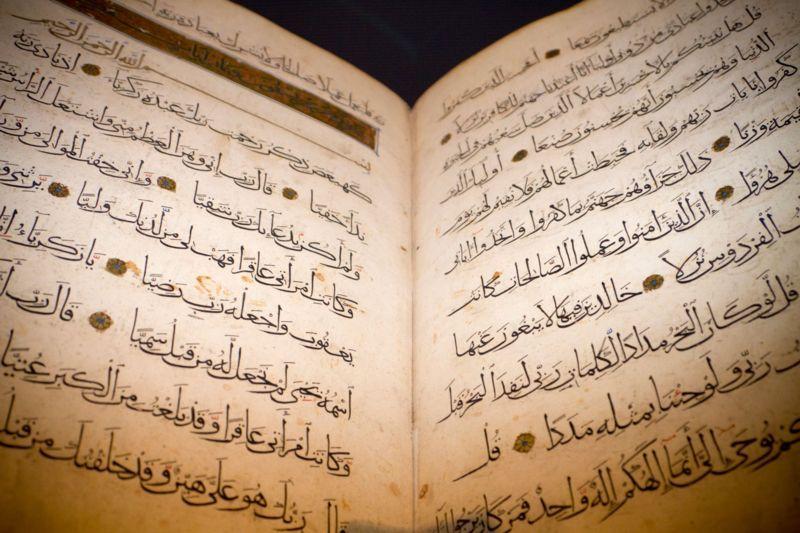 أفحسب الذين كفروا
من دوني أولياء إنا أعتدنا جهنم للكافرين نزلا
قل هل ننبئكم بالأخسرين أعمالا الذين ضل سعيهم في الحياة
الدنيا وهم يحسبون أنهم يحسنون صنعا أولئك الذين
كفروا بايات ربهم ولقائه فحبطت أعمالهم فلا نقيم لهم يوم
القيمة وزنا ذلك جزاؤهم جهنم بما كفروا واتخذوا اياتي
هزوا إن الذين امنوا وعملوا الصالحات كانت
الفردوس نزلا خالدين فيها لا يبغون عنها
قل لو كان البحر مدادا لكلمات ربي لنفد البحر قبل
ربي ولو جئنا بمثله مددا قل
يوحى إلي أنما إلهكم إله واحد فمن كان يرجوا
عملا صالحا ولا يشرك بعبادة ربه
بسم الله الرحمن الرحيم
كهيعص ذكر رحمت ربك عبده زكريا إذ نادى ربه
نداء خفيا قال رب إني وهن العظم مني واشتعل الرأس
ولم أكن بدعائك رب شقيا وإني خفت الموالي من
وكانت امرأتي عاقرا فهب لي من لدنك وليا يرثني
يعقوب واجعله رب رضيا يا زكريا إنا
اسمه يحيى لم نجعل له من قبل سميا قال رب
وكانت امرأتي عاقرا وقد بلغت من الكبر عتيا
قال ربك هو علي هين وقد خلقتك من قبل